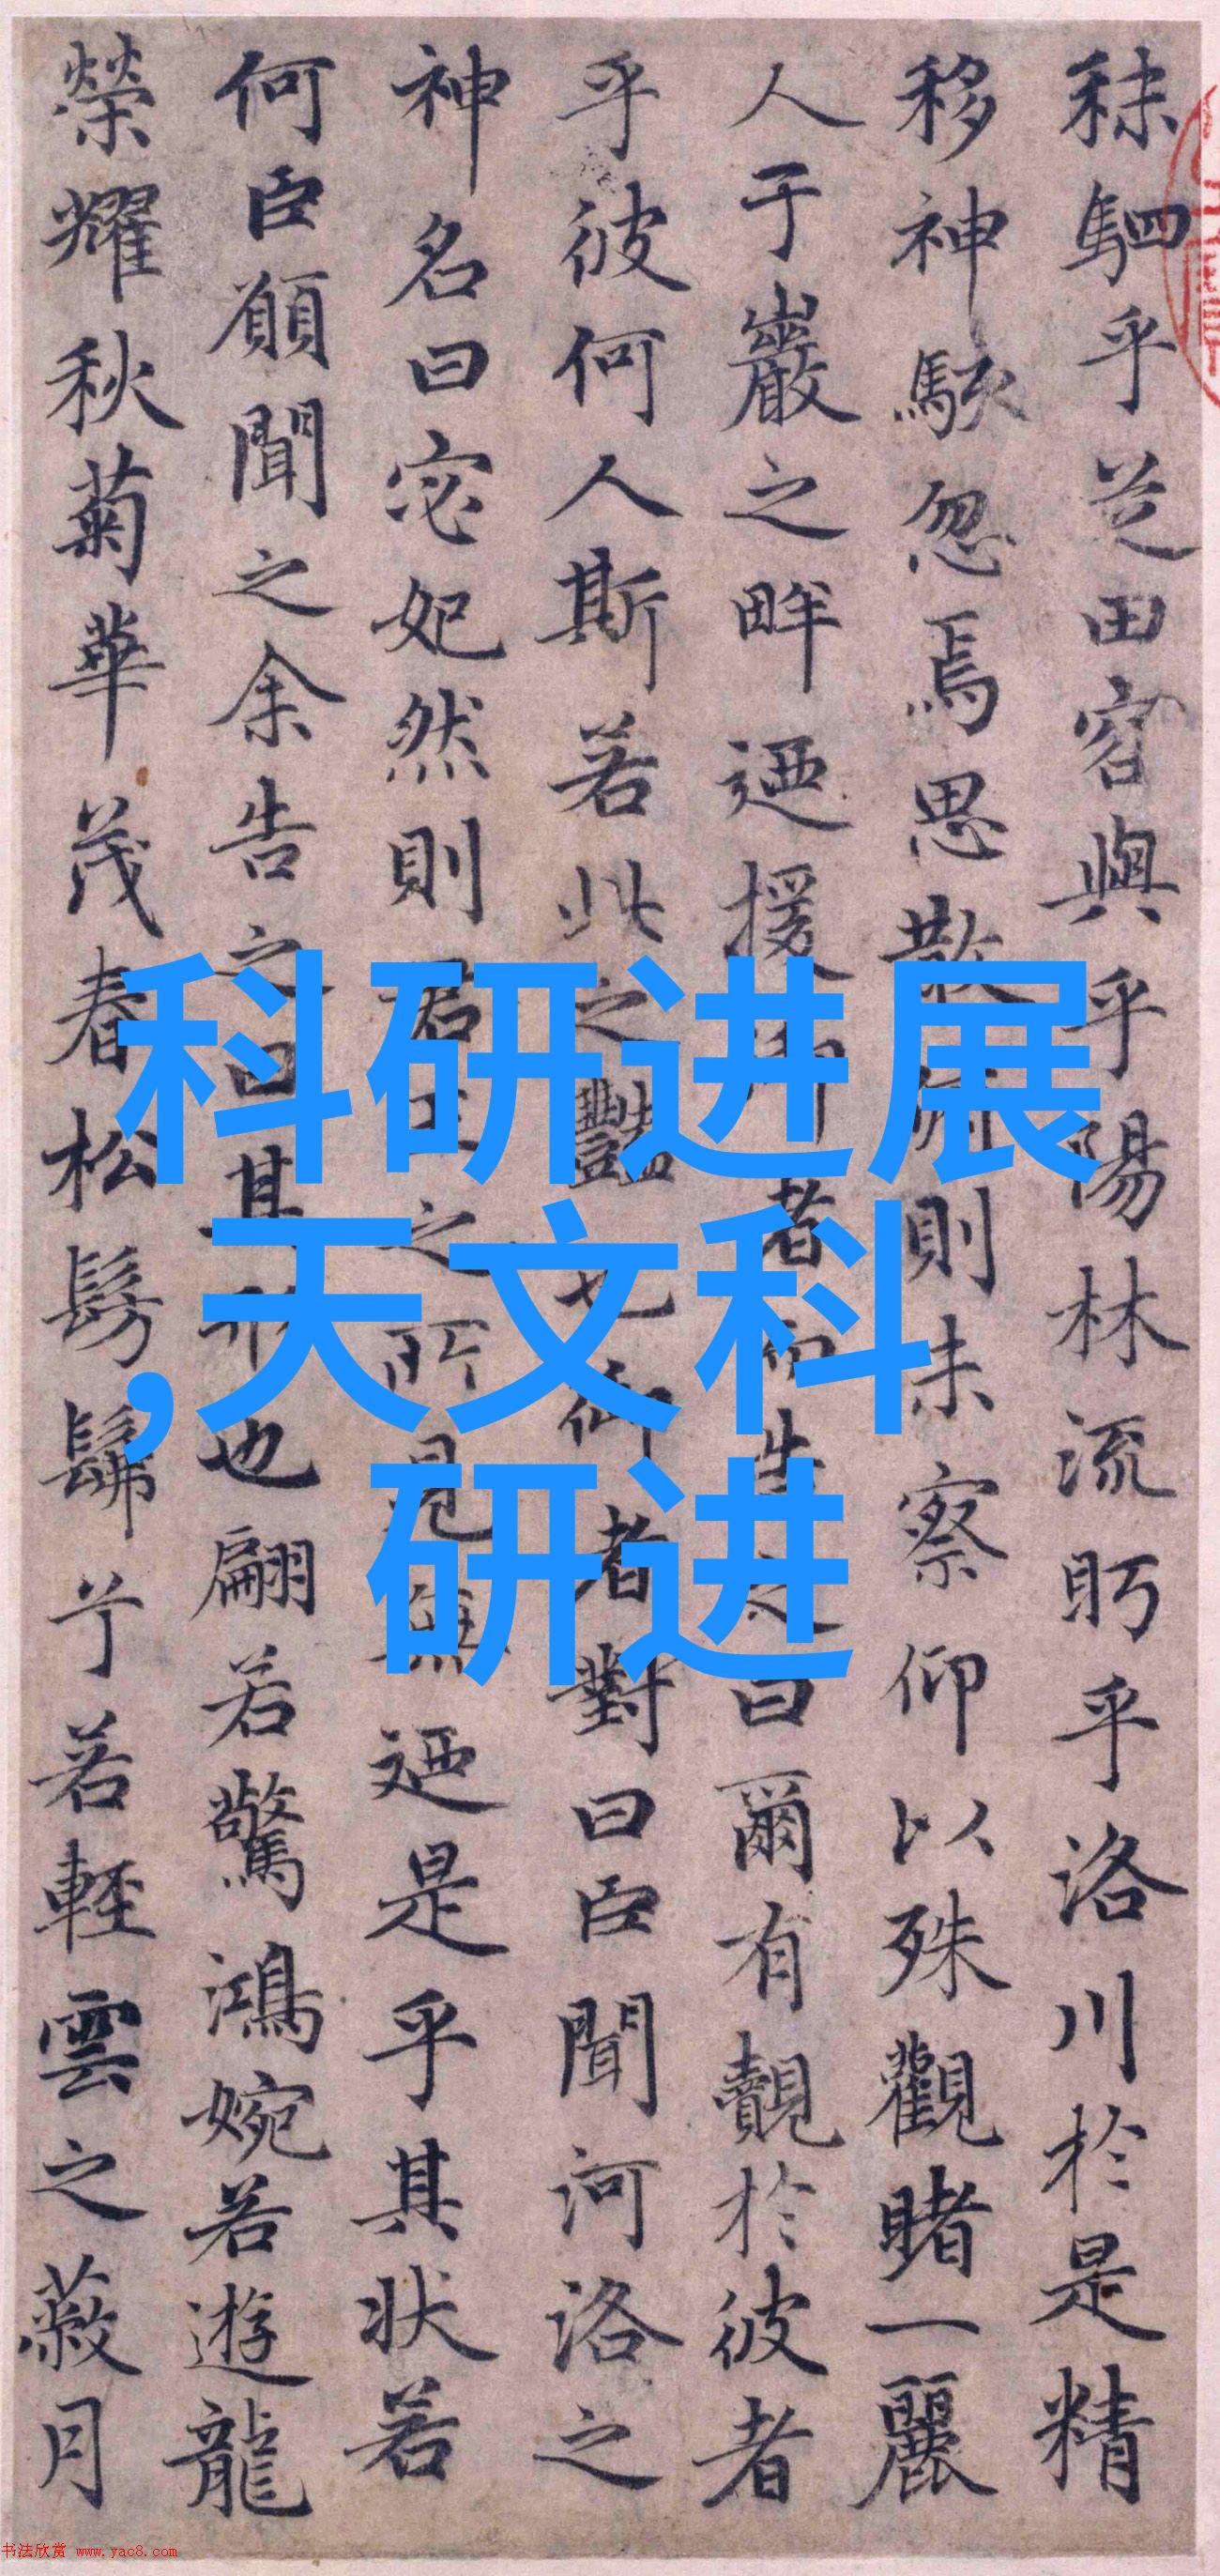 秣駟乎芝田容與乎陽林流眄乎洛川於是精
移神駭忽焉思散俯則未察仰以殊觀睹一麗
人于巖之畔迺援御者而告之曰爾有覿於彼者
乎彼何人斯若此之豔也御者對曰臣聞河洛之
神名曰宓妃然則君王之所見無迺是乎其狀若
何臣願聞之余告之曰其形也翩若驚鴻婉若遊龍
榮耀秋菊華茂春松髣髴兮若輕雲之蔽月
科研进展
,天文科
研进
书法欣赏 www.yac8.com